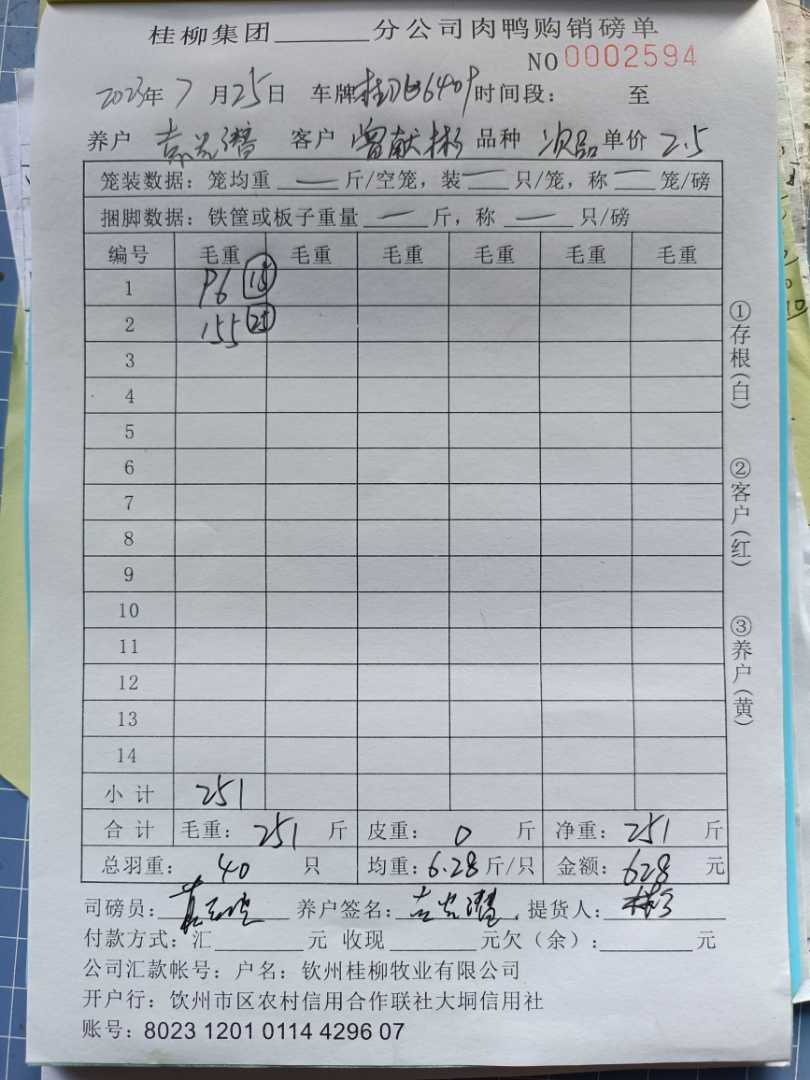 桂柳集团______分公司肉鸭购销磅单
NO 0002594
2023年 7 月25日 车牌 6409 时间段: 至
养户 客户 曾献彬 品种 次品 单价 2.5
笼装数据:笼均重 — 斤/空笼,装 — 只/笼,称 — 笼/磅
捆脚数据:铁筐或板子重量 — 斤,称 — 只/磅
编号 毛重 毛重 毛重 毛重 毛重 毛重
1 96
2 155
3
4
5
6
7
8
9
10
11
12
13
14
小计 251
合计 毛重: 251 斤 皮重: 0 斤 净重: 251 斤
总羽重: 40 只 均重:6.28斤/只 金额: 628 元
司磅员: 养户签名: 提货人: 彬
付款方式:汇______元 收现______元欠(余):______元
公司汇款帐号:户名:钦州桂柳牧业有限公司
开户行:钦州市区农村信用合作联社大垌信用社
账号:8023 1201 0114 4296 07
①存根(白)
②客户(红)
③养户(黄)